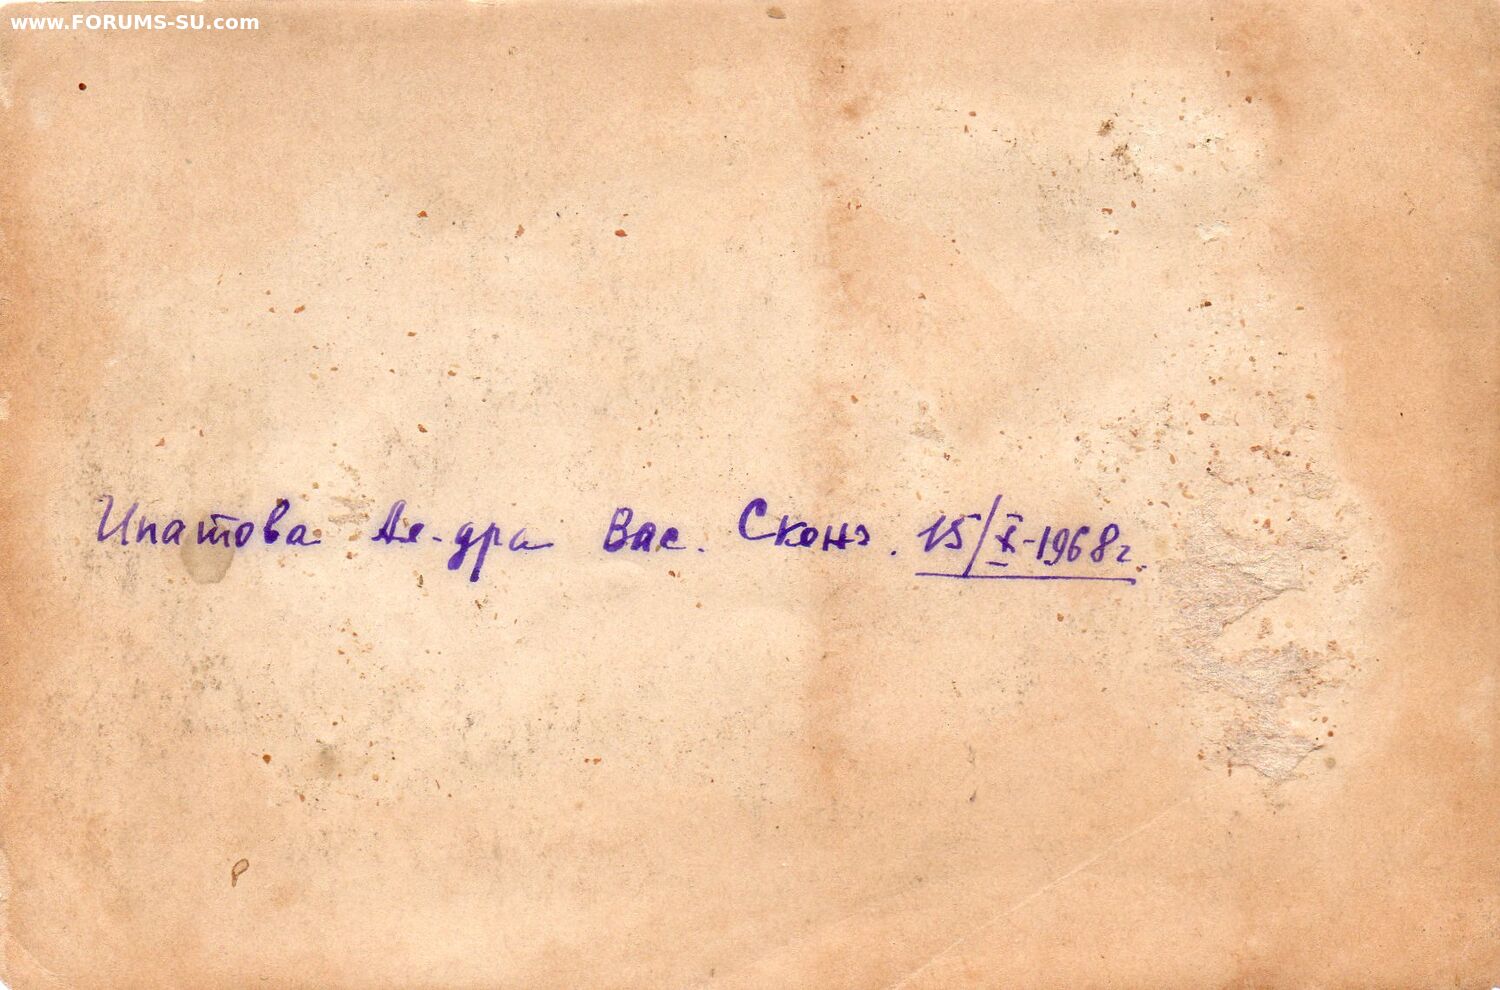 www.FORUMS-SU.com
Ипатова Ал-дра Вас. Сконч. 15/X-1968г.